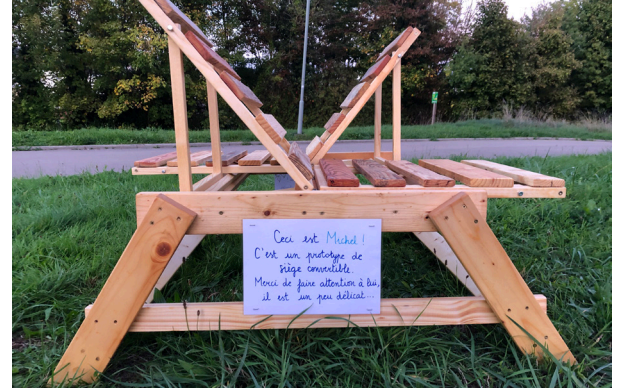 Ceci est Michel !
C'est un prototype de
siège convertible.
Merci de faire attention à lui,
il est un peu délicat...